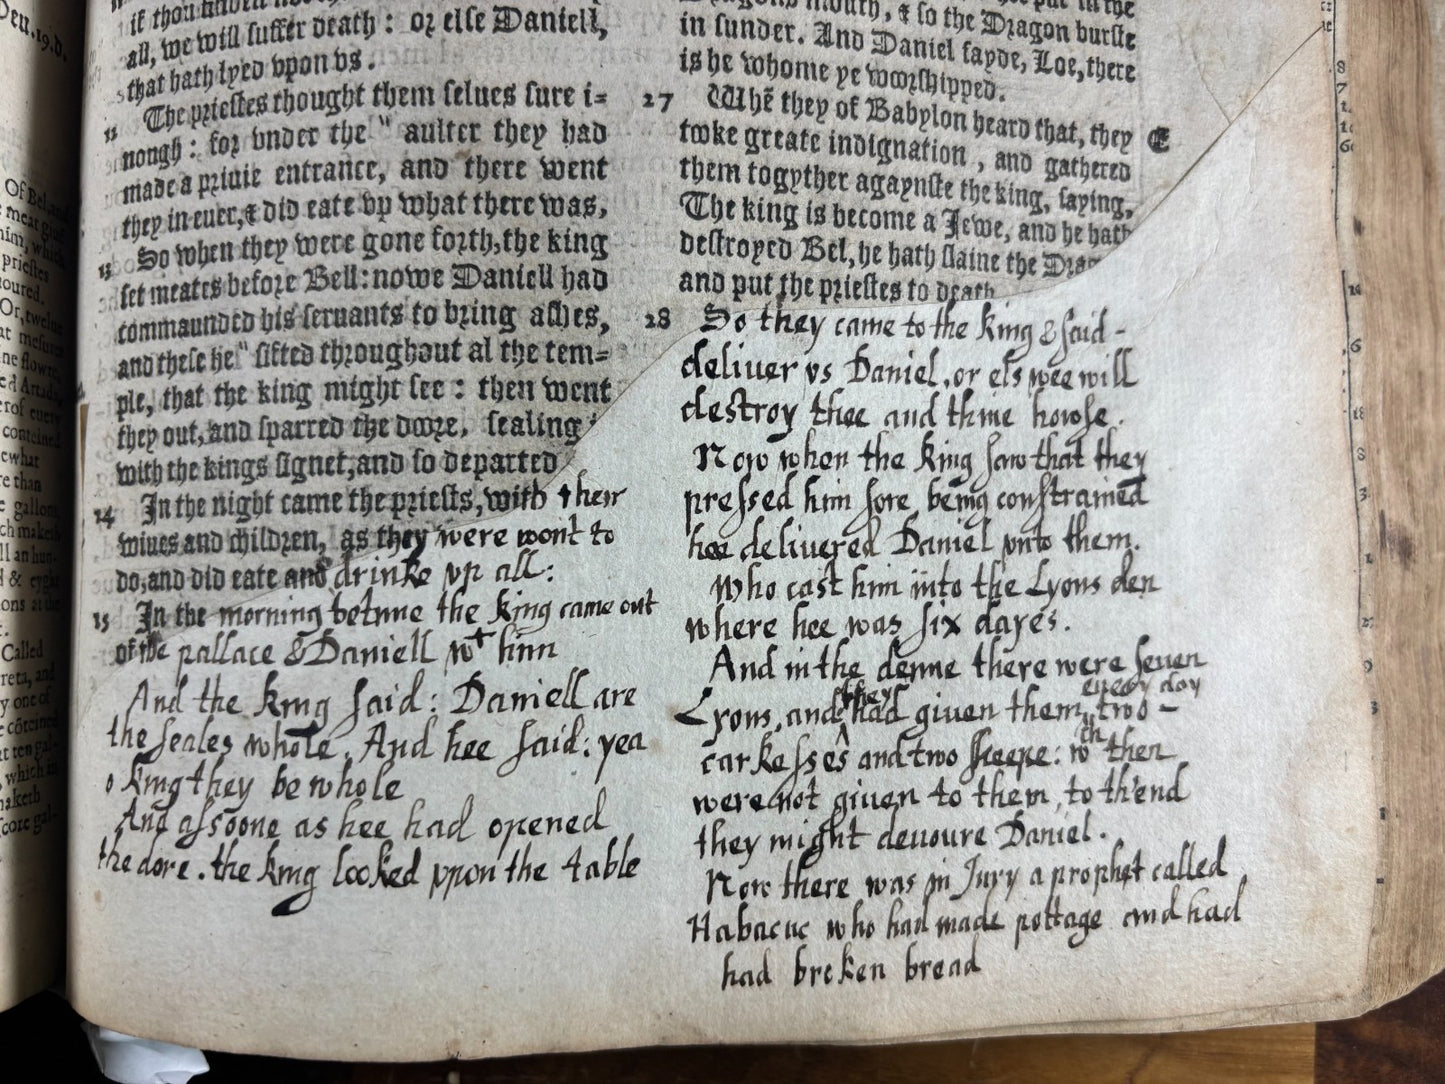 Deu.19.d.
all, we will suffer death: or else Daniell,
that hath lyed vpon vs.
12 The priestes thought them selues sure i=
nough: for vnder the " aulter they had
made a priuie entrance, and there went
they in euer, & did eate vp what there was,
13 So when they were gone forth, the king
set meates before Bell: nowe Daniell had
commaunded his seruants to bring ashes,
and these he " sifted throughout al the tem=
ple, that the king might see: then went
they out, and sparred the doore, sealing
with the kings signet, and so departed
14 In the night came the priests, with their
wiues and children, as they were wont to
do, and did eate and drinke vp all:
15 In the morning betime the king came out
of the pallace & Daniell wt him
And the king said: Daniell are
the seales whole. And hee said: yea
o king they be whole
And assoone as hee had opened
the dore. the king looked vppon the table
mouth, & so the Dragon burste
in sunder. And Daniel sayde, Loe, there
is he whome ye worshipped.
27 Whē they of Babylon heard that, they
tooke greate indignation, and gathered
them togyther agaynste the king, saying,
The king is become a Jewe, and he hath
destroyed Bel, he hath slaine the Drag
and put the priestes to death
28 So they came to the king & said -
deliuer vs Daniel, or els wee will
destroy thee and thine howse.
Now when the king saw that they
pressed him sore, being constrained
hee deliuered Daniel vnto them.
Who cast him into the Lyons den
where hee was six dayes.
And in the denne there were seuen
Lyons, and they had given them every day two -
carkesses and two sheepe: wth then
were not given to them, to th'end
they might deuoure Daniel.
Now there was in Jury a prophet called
Habacuc who had made pottage and had
had broken bread